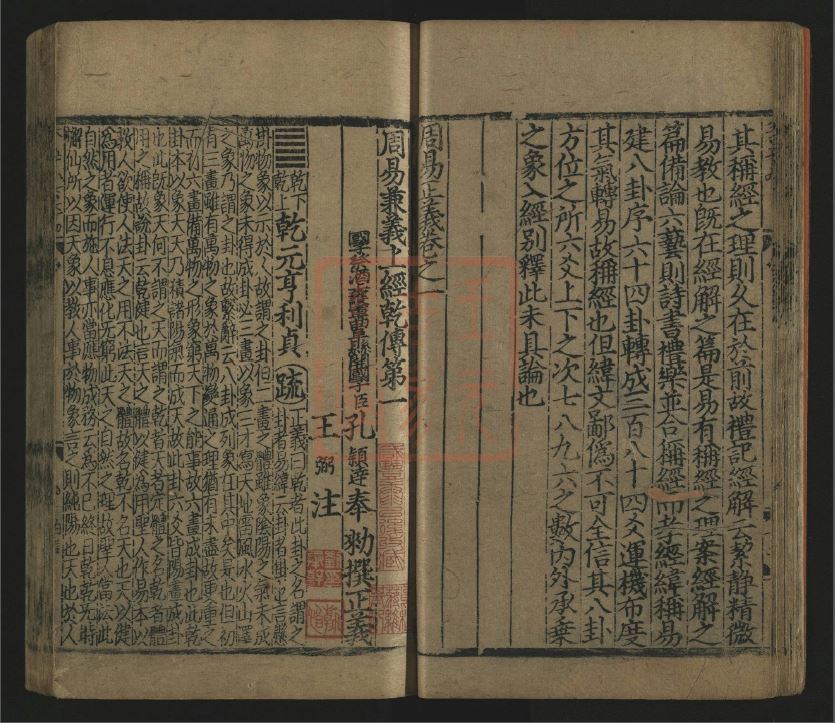 其稱經之理則久在於前故禮記經解云絜靜精微
易教也既在經解之篇是易有稱經之理案經解之
篇備論六藝則詩書禮樂並合稱經而孝經緯稱易
建八卦序六十四卦轉成三百八十四爻運機布度
其氣轉易故稱經也但緯文鄙僞不可全信其八卦
方位之所六爻上下之次七八九六之數內外承乗
之象入經別釋此未具論也
周易正義卷之一
周易兼義上經乾傳第一
國子祭酒上護軍曲阜縣開國子臣孔穎逹奉勑撰正義
王弼注
乾下乾上乾元亨利貞疏正義曰乾者此卦之名謂之
卦者易緯云卦者掛也言縣
掛物象以示於人故謂之卦但二畫之體雖象陰陽之氣未成
萬物之象未得成卦必三畫以象三才寫天地雷風水火山澤
之象乃謂之卦也故繫辭云八卦成列象在其中矣是也但初
有三畫雖有萬物之象於萬物變通之理猶有未盡故更重之
而有六畫備萬物之形象窮天下之能事故六畫成卦也此乾
卦本以象天天乃積諸陽氣而成天故此卦六爻皆陽畫成卦
也此旣象天何不謂之天而謂之乾者天者定體之名乾者體
用之稱故說卦云乾健也言天之體以健爲用聖人作易本以
教人欲使人法天之用不法天之體故名乾不名天也天以健
爲用者運行不息應化无窮此天之自然之理故聖人當法此
自然之象而施人事亦當應物成務云爲不已終日乾乾无時
懈倦所以因天象以教人事於物象言之則純陽也天也於人